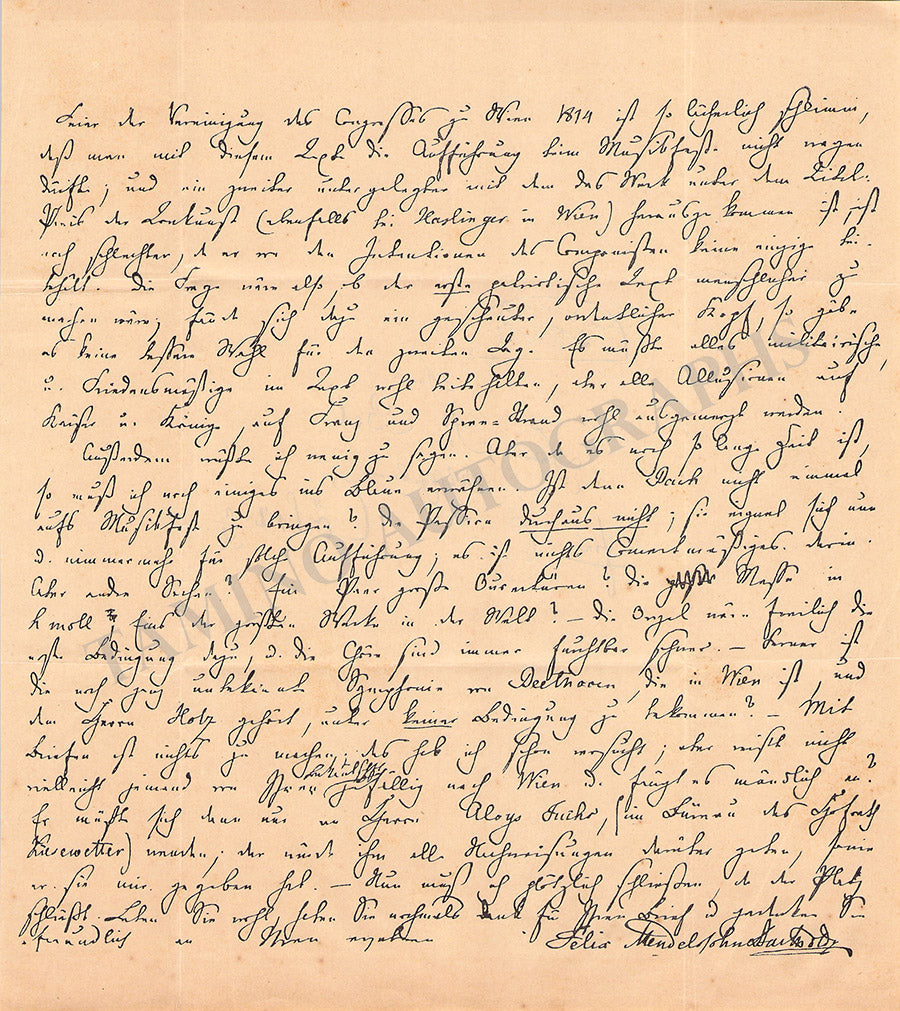 Feier der Vereinigung des Congresses zu Wien 1814 ist so lächerlich schlimm,
daß man mit diesem Text die Aufführung beim Musikfeste nicht wagen
dürfte; und ein zweiter untergelegter mit dem das Werk unter dem Titel:
Preis der Tonkunst (ebenfalls bei Haslinger in Wien) herausgekommen ist, ist
noch schlechter, da er von den Intentionen des Componisten keine einzige bei-
behält. Die Frage wäre also, ob der erste patriotische Text menschlicher zu
machen wäre; fände sich dazu ein gescheuter, ordentlicher Kopf, so gäbe
es keine bessere Wahl für den zweiten Tag. Es müßte alles militairische,
u. Friedensmäßige im Text wohl beibehalten, aber alle Allusionen auf
Kaiser u. Könige, auf Franz und Spree-Strand wohl ausgemerzt werden.
Außerdem wüßte ich wenig zu sagen. Aber da es noch so lange Zeit ist,
so muß ich noch einiges ins Blaue erwähnen. Ist denn Bach nicht einmal
aufs Musikfest zu bringen? Die Passion durchaus nicht; sie eignet sich nun
u. nimmermehr für solch Aufführung; es ist nichts Concertmäßiges darin.
Aber andre Sachen? Ein Paar große Ouvertüren? Die Messe in
h moll? Eins der größten Werke in der Welt? – die Orgel wäre freilich die
erste Bedingung dazu, u. die Chöre sind immer furchtbar schwer. – Ferner ist
die noch ganz unbekannte Symphonie von Beethoven, die in Wien ist, und
dem Herrn Holz gehört, unter keiner Bedingung zu bekommen? – Mit
Briefen ist nichts zu machen; das hab ich schon versucht; aber reist nicht
vielleicht jemand von Ihren Bekannten zufällig nach Wien u. frägt es mündlich an?
Er müßte sich dann nur an Herrn Aloys Fuchs, (im Büreau des Hofrath
Kiesewetter) wenden; der würde ihm alle Nachweisungen darüber geben, sowie
er sie mir gegeben hat. – Nun muß ich plötzlich schließen, da der Platz
schließt. Leben Sie wohl, haben Sie nochmals Dank für Ihren Brief u gedenken Sie
freundlich an Ihren ergebnen Felix Mendelssohn Bartholdy
TAMINO AUTOGRAPHS